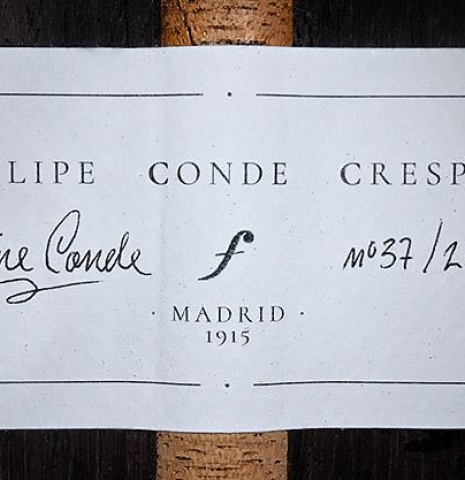 LIPE CONDE CRESP
ne Conde f nº37/2
· MADRID ·
1915